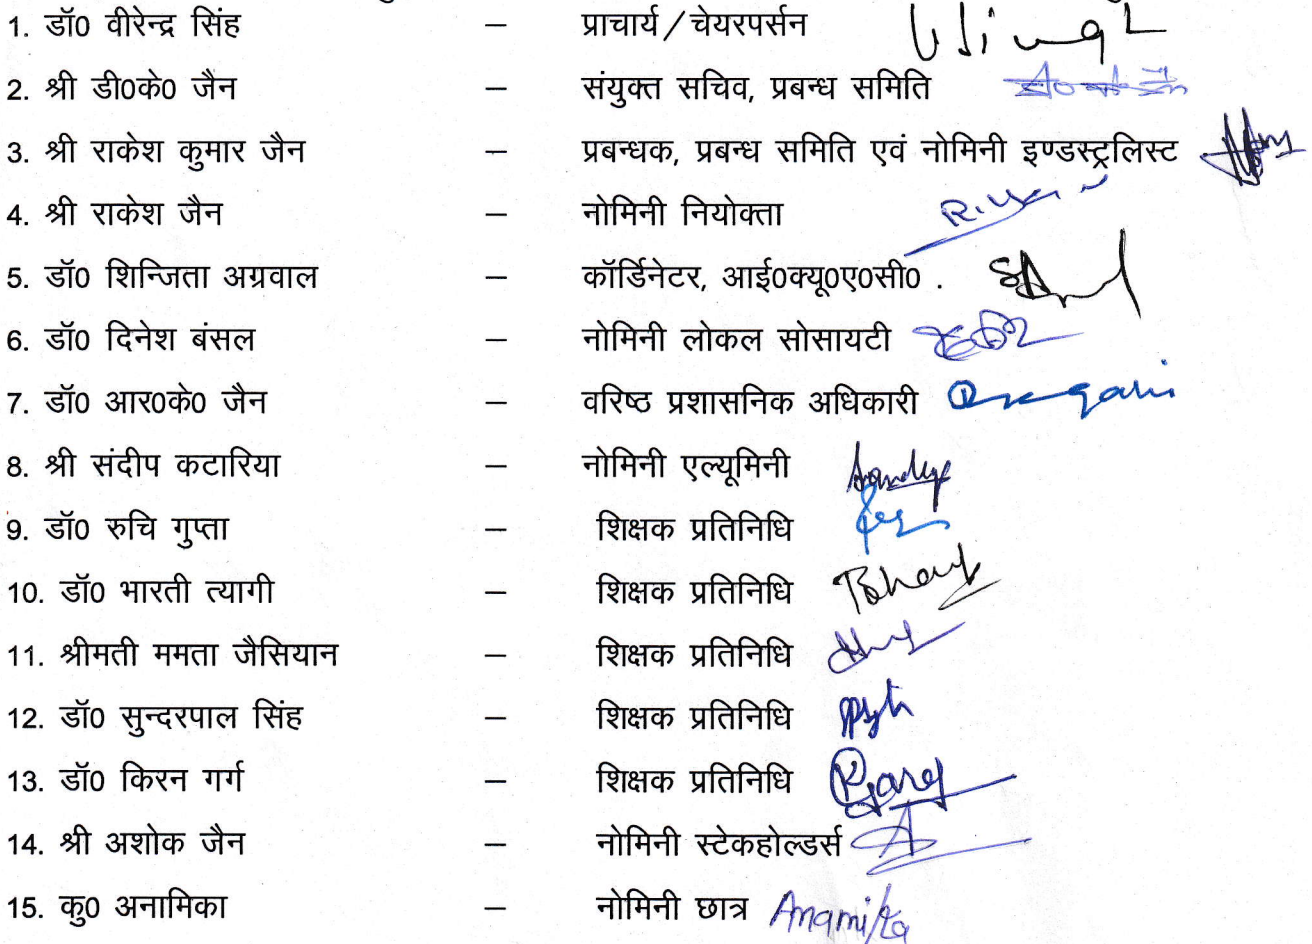 1. डॉ0 वीरेन्द्र सिंह – प्राचार्य/चेयरपर्सन
2. श्री डी0के0 जैन – संयुक्त सचिव, प्रबन्ध समिति
3. श्री राकेश कुमार जैन – प्रबन्धक, प्रबन्ध समिति एवं नोमिनी इण्डस्ट्रलिस्ट
4. श्री राकेश जैन – नोमिनी नियोक्ता
5. डॉ0 शिन्जिता अग्रवाल – कॉर्डिनेटर, आई0क्यू0ए0सी0 .
6. डॉ0 दिनेश बंसल – नोमिनी लोकल सोसायटी
7. डॉ0 आर0के0 जैन – वरिष्ठ प्रशासनिक अधिकारी
8. श्री संदीप कटारिया – नोमिनी एल्यूमिनी
9. डॉ0 रुचि गुप्ता – शिक्षक प्रतिनिधि
10. डॉ0 भारती त्यागी – शिक्षक प्रतिनिधि
11. श्रीमती ममता जैसियान – शिक्षक प्रतिनिधि
12. डॉ0 सुन्दरपाल सिंह – शिक्षक प्रतिनिधि
13. डॉ0 किरन गर्ग – शिक्षक प्रतिनिधि
14. श्री अशोक जैन – नोमिनी स्टेकहोल्डर्स
15. कु0 अनामिका – नोमिनी छात्र Anamika